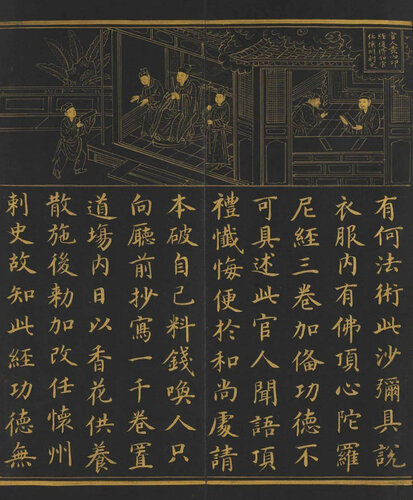 任懷州刺史
有何法術此沙彌具說
衣服內有佛頂心陀羅
尼經三卷加俻功德不
可具述此官人聞語頂
禮懺悔便於和尚處請
本破自己料錢喚人只
向廳前抄寫一千卷置
道場內日以香花供養
散施後勑加改任懷州
刺史故知此經功德無